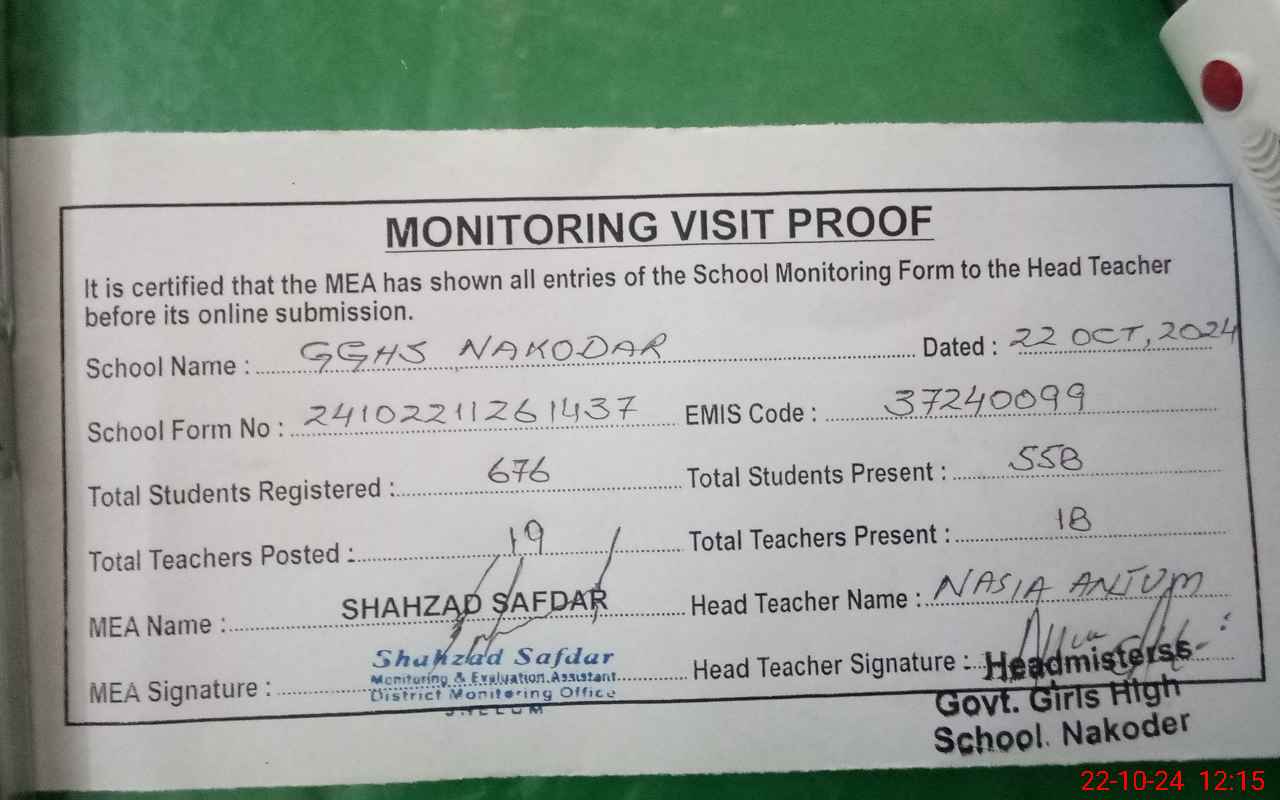 MONITORING VISIT PROOF
It is certified that the MEA has shown all entries of the School Monitoring Form to the Head Teacher
before its online submission.
School Name : GGHS NAKODAR Dated : 22 OCT, 2024
School Form No : 24102211261437 EMIS Code : 37240099
Total Students Registered : 676 Total Students Present : 558
Total Teachers Posted : 19 Total Teachers Present : 18
MEA Name : SHAHZAD SAFDAR Head Teacher Name : NASIA ANJUM
MEA Signature : Head Teacher Signature :
Shahzad Safdar
Monitoring & Evaluation Assistant
District Monitoring Office
Headmisterss
Govt. Girls High
School. Nakoder
22-10-24 12:15